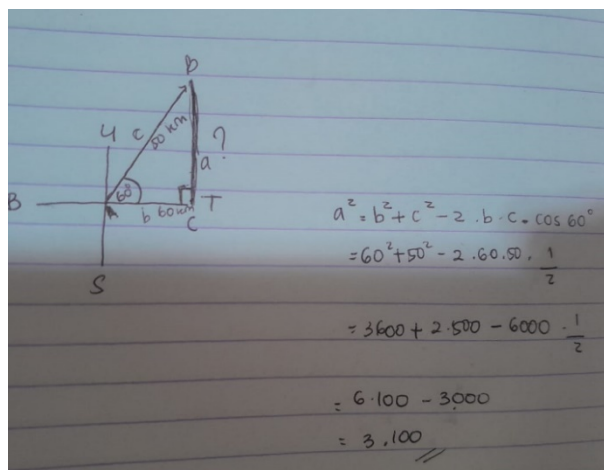 B
U
c
50 km
?
a
60°
B
A
b 60 km
C
T
S
a² = b² + c² - 2 . b . c . cos 60°
= 60² + 50² - 2 . 60 . 50 . 1/2
= 3600 + 2.500 - 6000 . 1/2
= 6.100 - 3.000
= 3.100